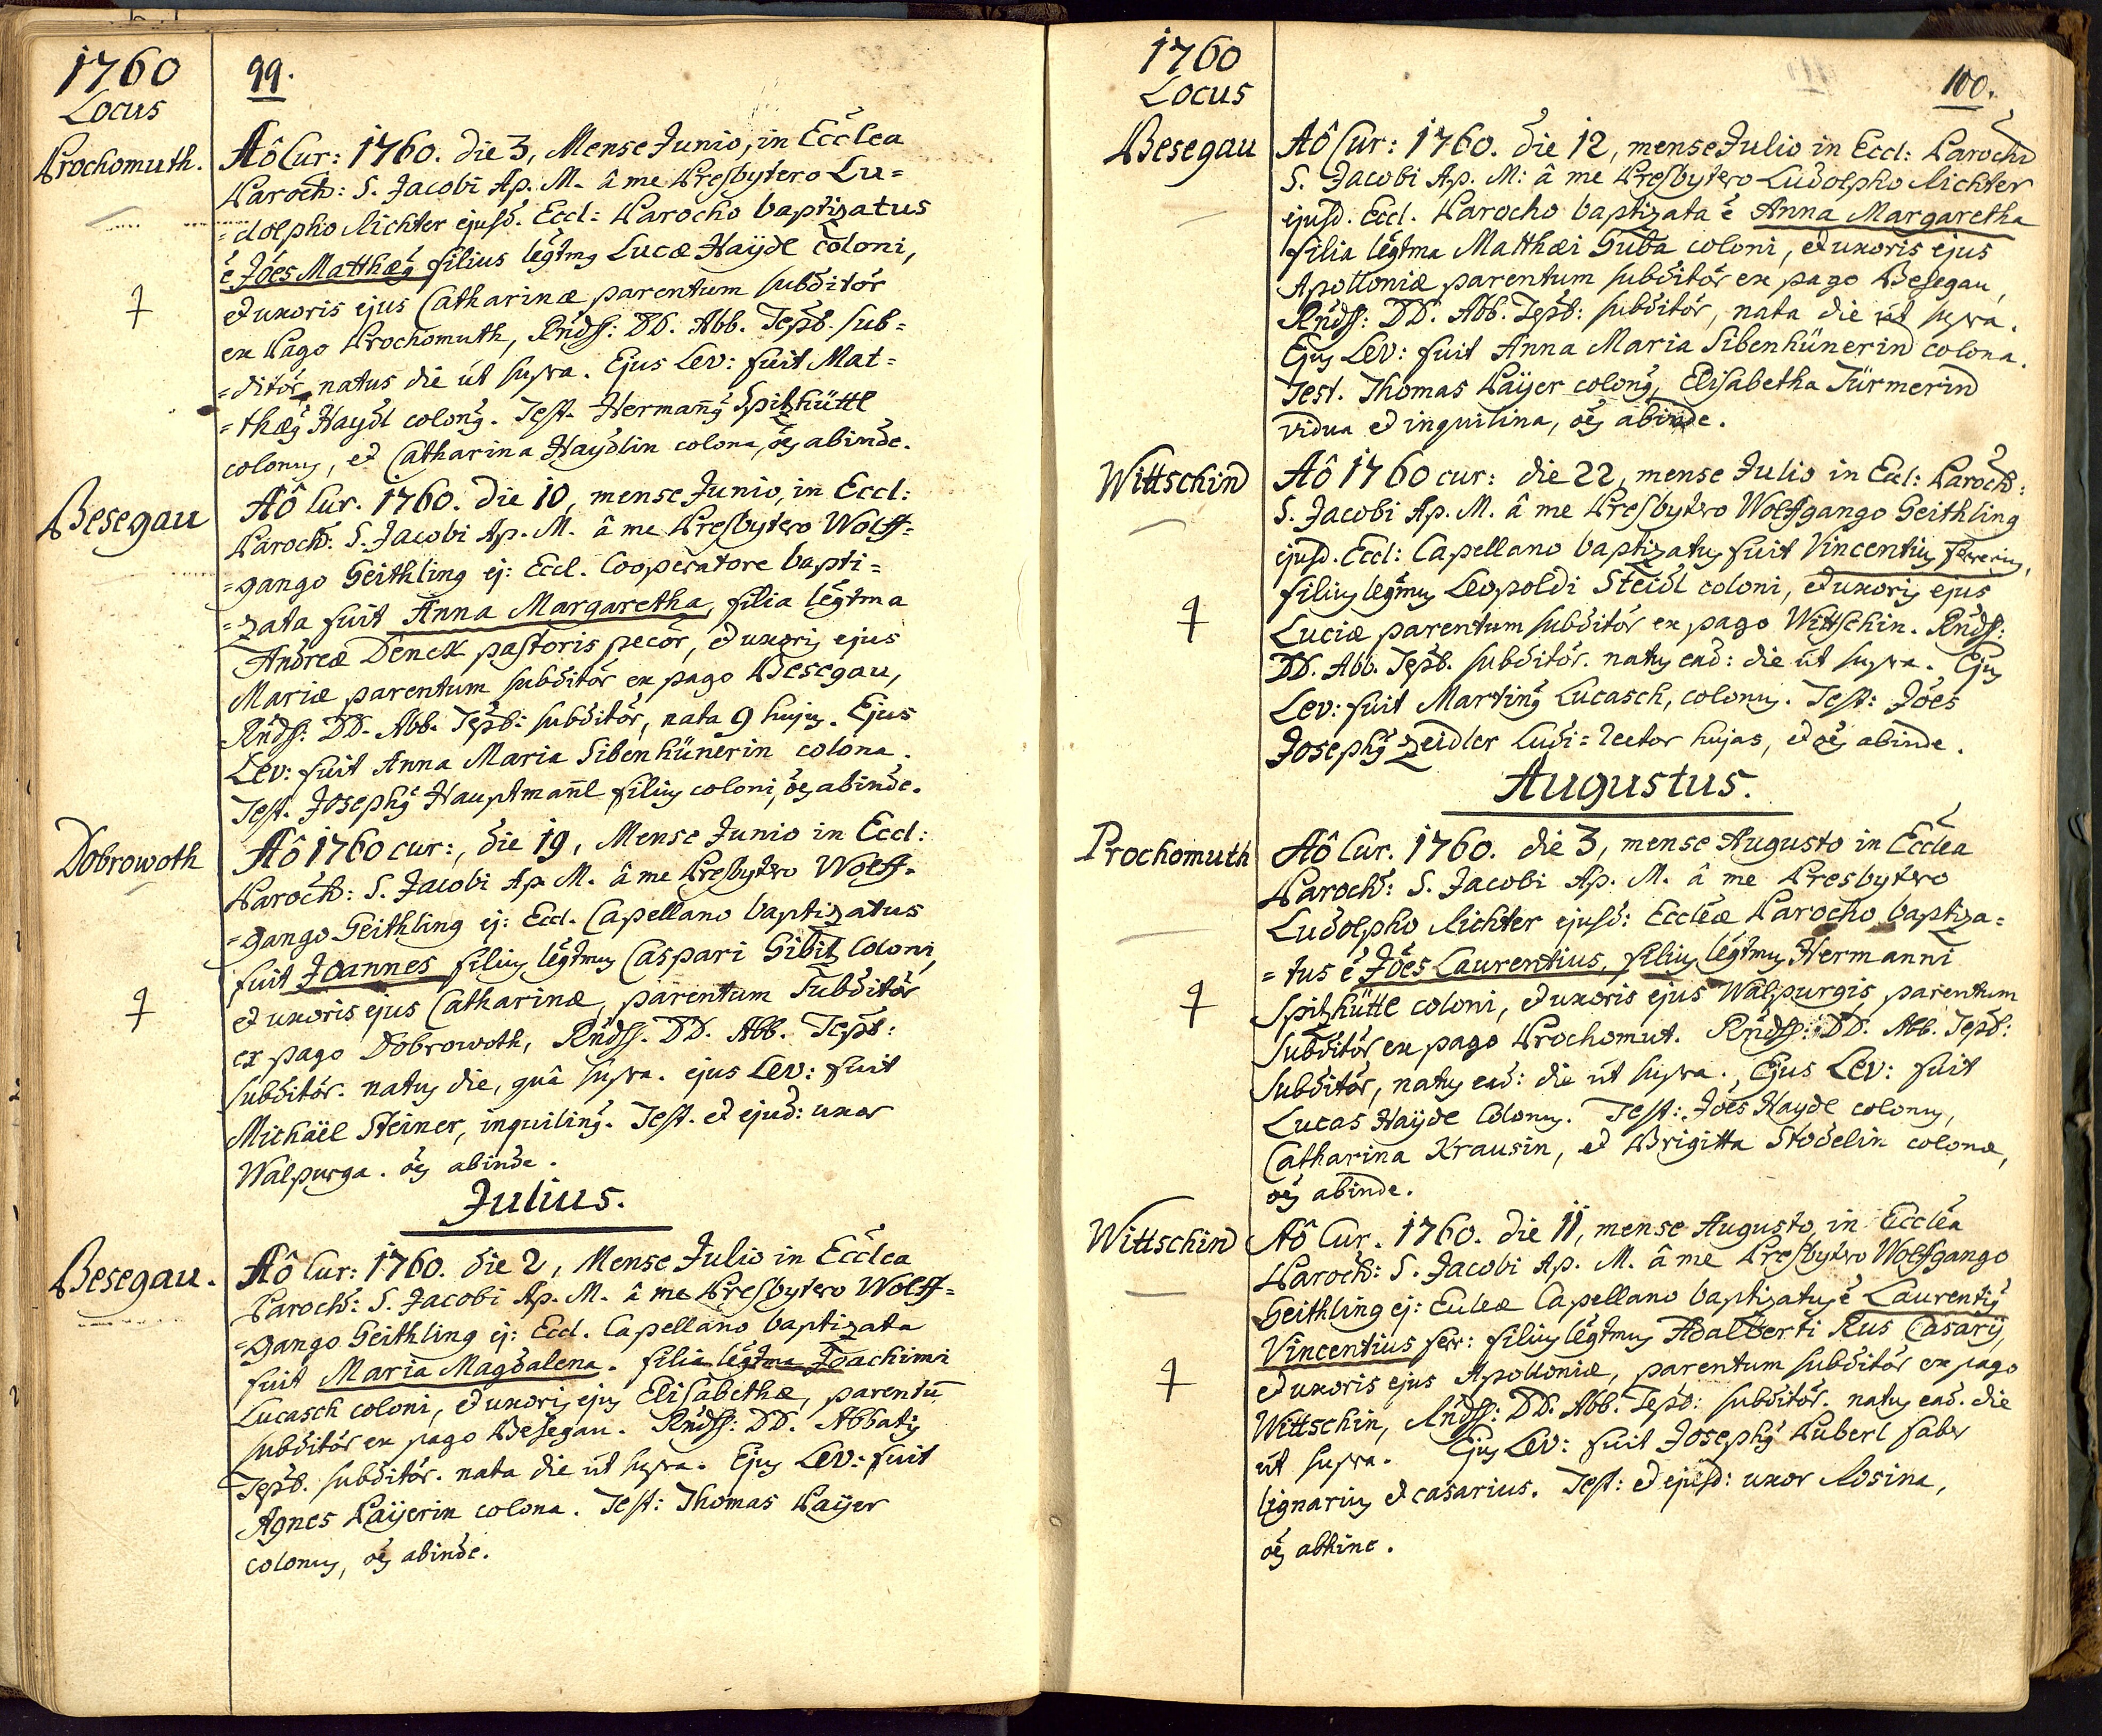 1760
Locus
99.
Prochomuth.
Aô Cur: 1760. die 3, Mense Junio, in Ecclea
Paroch: S. Jacobi Ap. M. â me Presbytero Lu=
=dolpho Richter ejusd. Eccl: Parocho baptizatus
e͂ Joes Matthæg filius legtmg Lucæ Haÿdl coloni,
et uxoris ejus Catharinæ parentum subditor
ex Pago Prochomuth, Rndss: DD. Abb. Tepb. sub=
=ditor, natus die ut supra. Ejus Lev: fuit Mat=
=thæg Haydl colong. Test. Hermanng Spitzhüttl
colonus, et Catharina Haydlin colona, oes abinde.
Besegau
Aô Cur. 1760. die 10, mense Junio, in Eccl:
Paroch: S. Jacobi Ap. M. â me Presbytero Wolff=
=gango Geithling ej: Eccl. Cooperatore bapti=
=zata fuit Anna Margaretha, filia legtma
Andreæ Denck pastoris pecor, et uxoris ejus
Mariæ parentum subditor ex pago Besegau,
Rndss: DD. Abb. Tepb: subditor, nata 9 hujus. Ejus
Lev: fuit Anna Maria Sibenhünerin colona.
Test. Josephg Hauptmannl filius coloni, oes abinde.
Dobrowoth
Aô 1760 cur:, die 19, Mense Junio in Eccl:
Paroch: S. Jacobi Ap. M. â me Presbytero Wolff=
=gango Geithling ej: Eccl. Capellano baptizatus
fuit Joannes filius legtmus Caspari Gibitz Coloni,
et uxoris ejus Catharinæ, parentum Subditor
ex pago Dobrowoth, Rndss. DD. Abb. Tepb:
subditor. natus die, quâ supra. ejus Lev: fuit
Michäel Steiner, inquiling. Test. et ejud: uxor
Walpurga. oes abinde.
Julius.
Besegau.
Aô Cur: 1760. die 2, Mense Julio in Ecclea
Paroch: S. Jacobi Ap. M. â me Presbytero Wolff=
=gango Geithling ej: Eccl. Capellano baptizata
fuit Maria Magdalena. filia legtma Joachimi
Lucasch coloni, et uxoris ejus Elisabethæ, parentu͂
subditor ex pago Besegau. Rndss: DD. Abbatis
Tepb. subditor. nata die ut supra. Ejus Lev: fuit
Agnes Paÿerin colona. Test: Thomas Paÿer
colonus, oes abinde.
1760
Locus
100.
Besegau
Aô Cur: 1760. die 12, mense Julio in Eccl: Paroch
S. Jacobi Ap. M: â me Presbytero Ludolpho Richter
ejusd. Eccl. Parocho baptizata e͂ Anna Margaretha
filia legtma Matthæi Guba coloni, et uxoris ejus
Apolloniæ parentum subditor ex pago Besegau,
Rndss: DD. Abb. Tepb: subditor, nata die ut supra.
Ejus Lev: fuit Anna Maria Sibenhünerin colona.
Test. Thomas Paÿer colong, Elisabetha Türmerin
vidua et inquilina, oes abinde.
Wittschin
Aô 1760 cur: die 22, mense Julio in Eccl: Paroch:
S. Jacobi Ap. M. â me Presbytero Wolffgango Geithling
ejusd. Eccl: Capellano baptizatus fuit Vincentius Ferrerius,
filius legtmus Leopoldi Steidl coloni, et uxoris ejus
Luciæ parentum subditor ex pago Wittschin. Rndss:
DD. Abb. Tepb. subditor. natus ead: die ut supra. Ejus
Lev: fuit Marting Lucasch, colonus. Test: Joes
Josephg Zeidler Ludi=Rector hujas, et oes abinde.
Augustus.
Prochomuth
Aô Cur. 1760. die 3, mense Augusto in Ecclea
Paroch: S. Jacobi Ap. M. â me Presbytero
Ludolpho Richter ejusd: Eccleæ Parocho baptiza=
=tus e͂ Joes Laurentius, filius legtmus Hermanni
Spitzhüttl coloni, et uxoris ejus Walpurgis parentum
subditor ex pago Prochomut. Rndss: DD. Abb. Tepb:
subditor, natus ead: die ut supra. Ejus Lev: fuit
Lucas Haÿdl Colonus. Test: Joes Haydl colonus,
Catharina Krausin, et Brigitta Stodelin colonæ,
oes abinde.
Wittschin
Aô Cur. 1760. die 11, mense Augusto in Ecclea
Paroch: S. Jacobi Ap. M. â me Presbytero Wolffgango
Geithling ej: Eccleæ Capellano baptizatus e͂ Laurentig
Vincentius ferr: filius legtmus Adalberti Rus Casarÿ,
et uxoris ejus Apolloniæ, parentum subditor ex pago
Wittschin, Rndss: DD. Abb. Tepb: subditor. natus ead. die
ut supra. Ejus Lev: fuit Josephg Huberl faber
lignarius et casarius. Test: et ejusd: uxor Rosina,
oes abhinc.